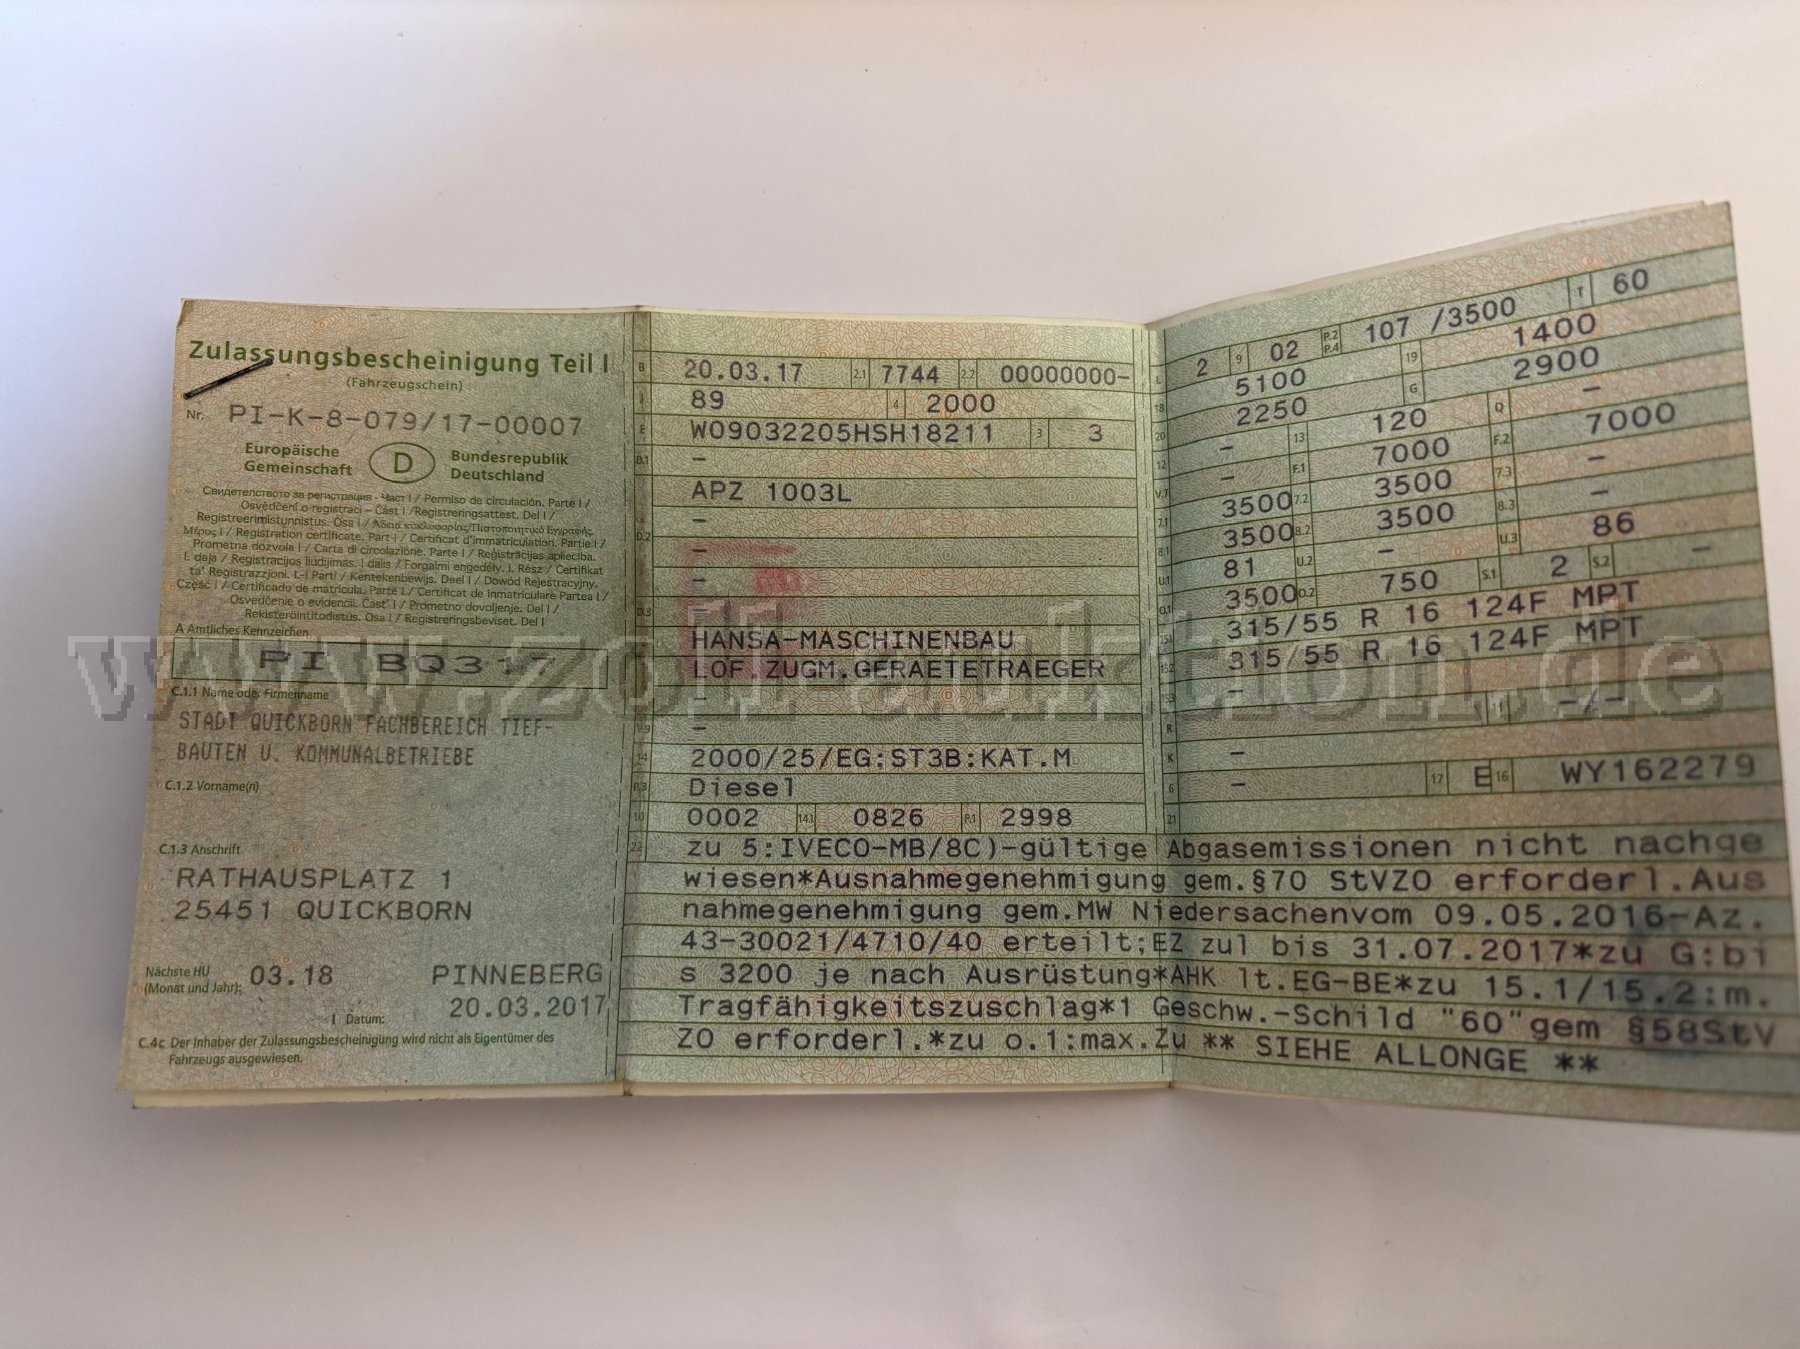 Zulassungsbescheinigung Teil I
(Fahrzeugschein)
Nr. PI-K-8-079/17-00007
Europäische Gemeinschaft
D
Bundesrepublik Deutschland
Свидетелството за регистрация - Част I / Permiso de circulación. Parte I /
Osvědčení o registraci – Část I / Registreringsattest. Del I /
Registreerimistunnistus. Osa I / Άδεια κυκλοφορίας/Πιστοποιητικό Εγγραφής.
Μέρος I / Registration certificate. Part I / Certificat d'immatriculation. Partie I /
Prometna dozvola I / Carta di circolazione. Parte I / Reģistrācijas apliecība.
I. daļa / Registracijos liudijimas. I dalis / Forgalmi engedély. I. Rész / Certifikat
ta' Reġistrazzjoni. L-I Parti / Kentekenbewijs. Deel I / Dowód Rejestracyjny.
Część I / Certificado de matrícula. Parte I / Certificat de înmatriculare Partea I /
Osvedčenie o evidencii. Časť I / Prometno dovoljenje. Del I /
Rekisteröintitodistus. Osa I / Registreringsbeviset. Del I
A Amtliches Kennzeichen
PI BQ317
C.1.1 Name oder Firmenname
STADT QUICKBORN FACHBEREICH TIEF-
BAUTEN U. KOMMUNALBETRIEBE
C.1.2 Vorname(n)
C.1.3 Anschrift
RATHAUSPLATZ 1
25451 QUICKBORN
Nächste HU
(Monat und Jahr): 03.18 PINNEBERG
I Datum: 20.03.2017
C.4c Der Inhaber der Zulassungsbescheinigung wird nicht als Eigentümer des
Fahrzeugs ausgewiesen.
B 20.03.17 2.1 7744 2.2 00000000-
J 89 4 2000
E W09032205HSH18211 3 3
D.1 -
APZ 1003L
-
D.2 -
-
D.3 -
HANSA-MASCHINENBAU
LOF.ZUGM.GERAETETRAEGER
-
V.9 -
14 2000/25/EG:ST3B:KAT.M
P.3 Diesel
10 0002 14.1 0826 P.1 2998
L 2 9 02 P.2 P.4 107 /3500 T 60
18 5100 19 1400
20 2250 G 2900
12 - 13 120 Q -
V.7 - F.1 7000 F.2 7000
7.1 3500 7.2 3500 7.3 -
8.1 3500 8.2 3500 8.3 -
U.1 81 U.2 - U.3 86
O.1 3500 O.2 750 S.1 2 S.2 -
15.1 315/55 R 16 124F MPT
15.2 315/55 R 16 124F MPT
-
R - 11 -/-
K -
6 - 17 E 16 WY162279
21
22 zu 5:IVECO-MB/8C)-gültige Abgasemissionen nicht nachge
wiesen*Ausnahmegenehmigung gem.§70 StVZO erforderl.Aus
nahmegenehmigung gem.MW Niedersachenvom 09.05.2016-Az.
43-30021/4710/40 erteilt;EZ zul bis 31.07.2017*zu G:bi
s 3200 je nach Ausrüstung*AHK lt.EG-BE*zu 15.1/15.2:m.
Tragfähigkeitszuschlag*1 Geschw.-Schild "60"gem §58StV
ZO erforderl.*zu o.1:max.Zu ** SIEHE ALLONGE **
www.zoll-auktion.de